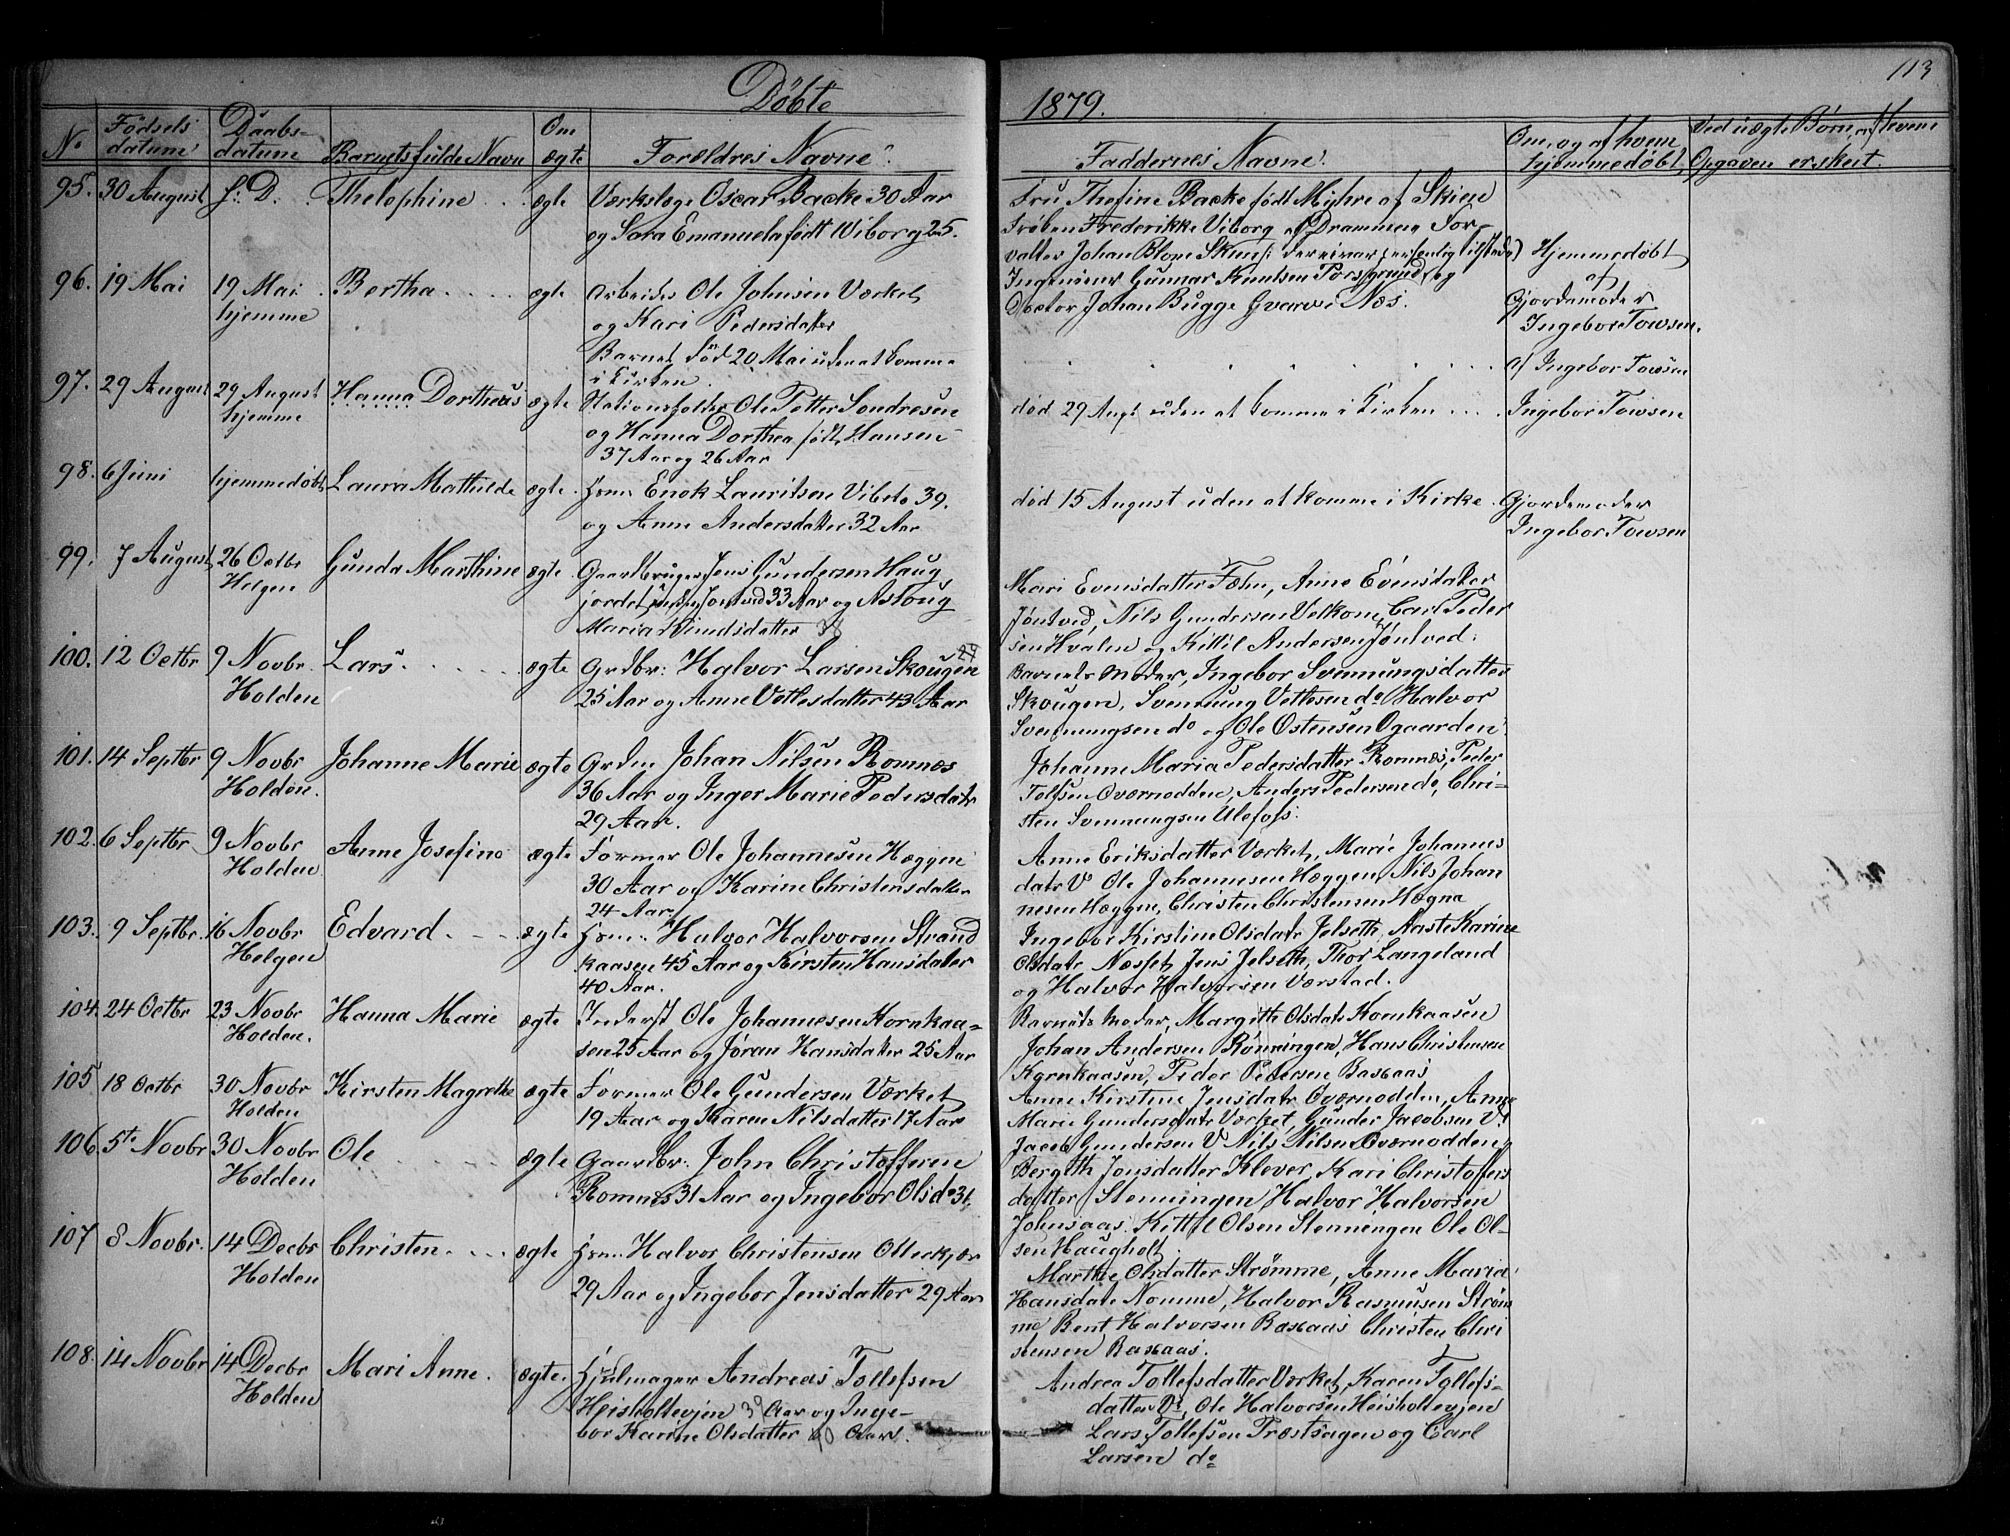 Döbte
1879.
113
No
Fødsels
datum
Daabs-
datum
Barnets fulde Navn
Om
ægte
Forældres Navne.
Faddernes Navne.
Om, og af hvem
hjemmedøbt,
Ved uægte Børn, af hvem
Opgaven er skeet.
95. 30 August s. D. Thelophine ægte Værkslæge Oscar Backe 30 Aar
og Sara Emanuela født Wiborg 25.
Fru Thefine Backe født Myhre af Skien
Frøken Frederikke Viborg af Drammen For-
valter Johan Blom Skien
Ingeniører Gunnar Knudsen Porsgrund, og
Doctor Johan Bugge Gvarv i Næs.
96. 19 Mai 19 Mai
hjemme
Bertha ægte Arbeider Ole Johnsen Værket
og Kari Pedersdatter
Barnet død 20 Mai uden at komme
i Kirken.
Hjemmedøbt
af
Gjordemoder
Ingebor Towsen.
97. 29 August 29 August
hjemme
Hanna Dortheas ægte Stationsholder Ole Petter Sondresen
og Hanna Dorthea født Hansen
37 Aar og 26 Aar
død 29 Augt uden at komme i Kirken
af Ingebor Towsen
Ingebor Towsen
98. 6 Juni hjemmedøbt Laura Mathilde ægte Hsm. Enok Lauritsen Vibeto 39.
og Anne Andersdatter 32 Aar
død 15 August uden at komme i Kirke
Gjordemoder
Ingebor Towsen
99. 7 August 26 Octbr
Helgen
Gunda Marthine ægte Gaardbruger Jens Gundersen Haug
jordet Jontved 33 Aar og Asloug
Maria Knudsdatter 38
Mari Evensdatter Fæhn, Anne Evensdater
Jøntved, Nils Gundersen Velkom, Carl Peder
sen Hvalen og Kittil Andersen Jøntved.
100. 12 Octbr 9 Novbr.
Holden
Lars ægte Grdbr: Halvor Larsen Skougen
25 Aar og Anne Vetlesdatter 43 Aar
Barnets Moder, Ingebor Svennungsdatter
Skougen, Svennung Vettesen do, Halvor
Svennungsen do og Ole Ostensen Ogaarden
101. 14 Septbr 9 Novbr
Holden.
Johanne Marie ægte Grdm Johan Nilsen Romnes
36 Aar og Inger Marie Pedersdatr
29 Aar.
Johanne Maria Pedersdatter Romnes, Peder
Tolfsen Overnodden, Anders Pedersen do, Chri-
sten Svennungsen Ulefoss.
102. 6 Septbr 9 Novbr
Holden
Anne Josefine ægte Former Ole Johannesen Hæggen
30 Aar og Karine Christensdatter
24 Aar
Anne Eriksdatter Værket, Marie Johannes
datr V Ole Johannesen Hæggen, Nils Johan
nesen Hæggen, Christen Christensen Hægna
103. 9 Septbr. 16 Novbr
Helgen
Edvard ægte Hsm. Halvor Halvorsen Strand
kaasen 45 Aar og Kirsten Hansdater
40 Aar.
Ingebor Kirstine Olsdatr Jelseth, Aaste Karine
Olsdatr Næsset, Jens Jelseth, Thor Langeland
og Halvor Halvorsen Værstad.
104. 24 Octbr 23 Novbr
Holden.
Hanna Marie ægte Inderst Ole Johannesen Kornkaa-
sen 25 Aar og Jøran Hansdatter 25 Aar
Barnets Moder, Margitte Olsdatr Kornkaasen
Johan Andersen Rønningen, Hans Christensen
Kornkaasen, Peder Pedersen Baskaas
105 18 Octbr 30 Novbr
Holden
Kirsten Magrethe ægte Former Ole Gundersen Værket
19 Aar og Karen Nilsdatter 17 Aar
Anne Kirstine Jensdatr Overnodden, Anne
Marie Gundersdatr Værket, Gunder Jacobsen V.
Jacob Gundersen V Nils Nilsen Overnodden
106. 5te Novbr 30 Novbr
Holden
Ole ægte Gaardbr: John Christoffersen
Romnes 31 Aar og Ingebor Olsdr 31
Bergith Jensdatter Klever Kari Christoffers
datter Stenningen Halvor Halvorsen
Johnsaas. Kittil Olsen Stenningen Ole Ol-
sen Haugholt
107 8 Novbr. 14 Decbr
Holden
Christen ægte Hsm. Halvor Christensen Otterkjær
29 Aar og Ingebor Jensdatter 29 Aar
Marthe Olsdatter Strømme, Anne Maria
Hansdatr Nomme, Halvor Rasmusen Strøm
me, Bent Halvorsen Baskaas Christen Chri
stensen Baskaas.
108. 14 Novbr 14 Decbr
Holden
Mari Anne ægte Hjulmager Andreas Tollefsen
Heisholtveien 39 Aar og Inge-
bor Karine Olsdatter 40 Aar.
Andrea Tollefsdatter Værket, Karen Tollefs-
datter Do, Ole Halvorsen Heisholtveien
Lars Tollefsen Træstsagen og Carl
Larsen do